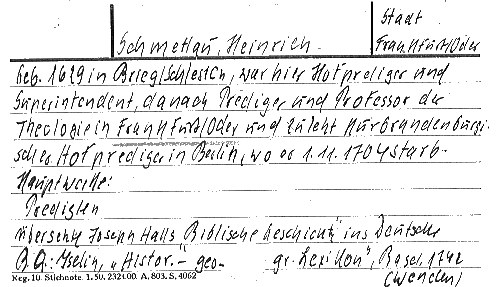 Stadt
Schmettau, Heinrich.
Frankfurt/Oder
Geb. 1629 in Brieg/Schlesien, war hier Hofprediger und
Superintendent, danach Prediger und Professor der
Theologie in Frankfurt/Oder und zuletzt Kurbrandenburgi-
scher Hofprediger in Berlin, wo er 1.11.1704 starb.
Hauptwerke:
Predigten
übersetzte Joseph Halls "Biblische Geschichte" ins Deutsche
B.Q.: Iselin, "Histor.- geo- gr. Lexikon", Basel 1742
Neg. 10. Stichnote. 1. 50. 232100. A. 803. S. 4062
(Wenden)